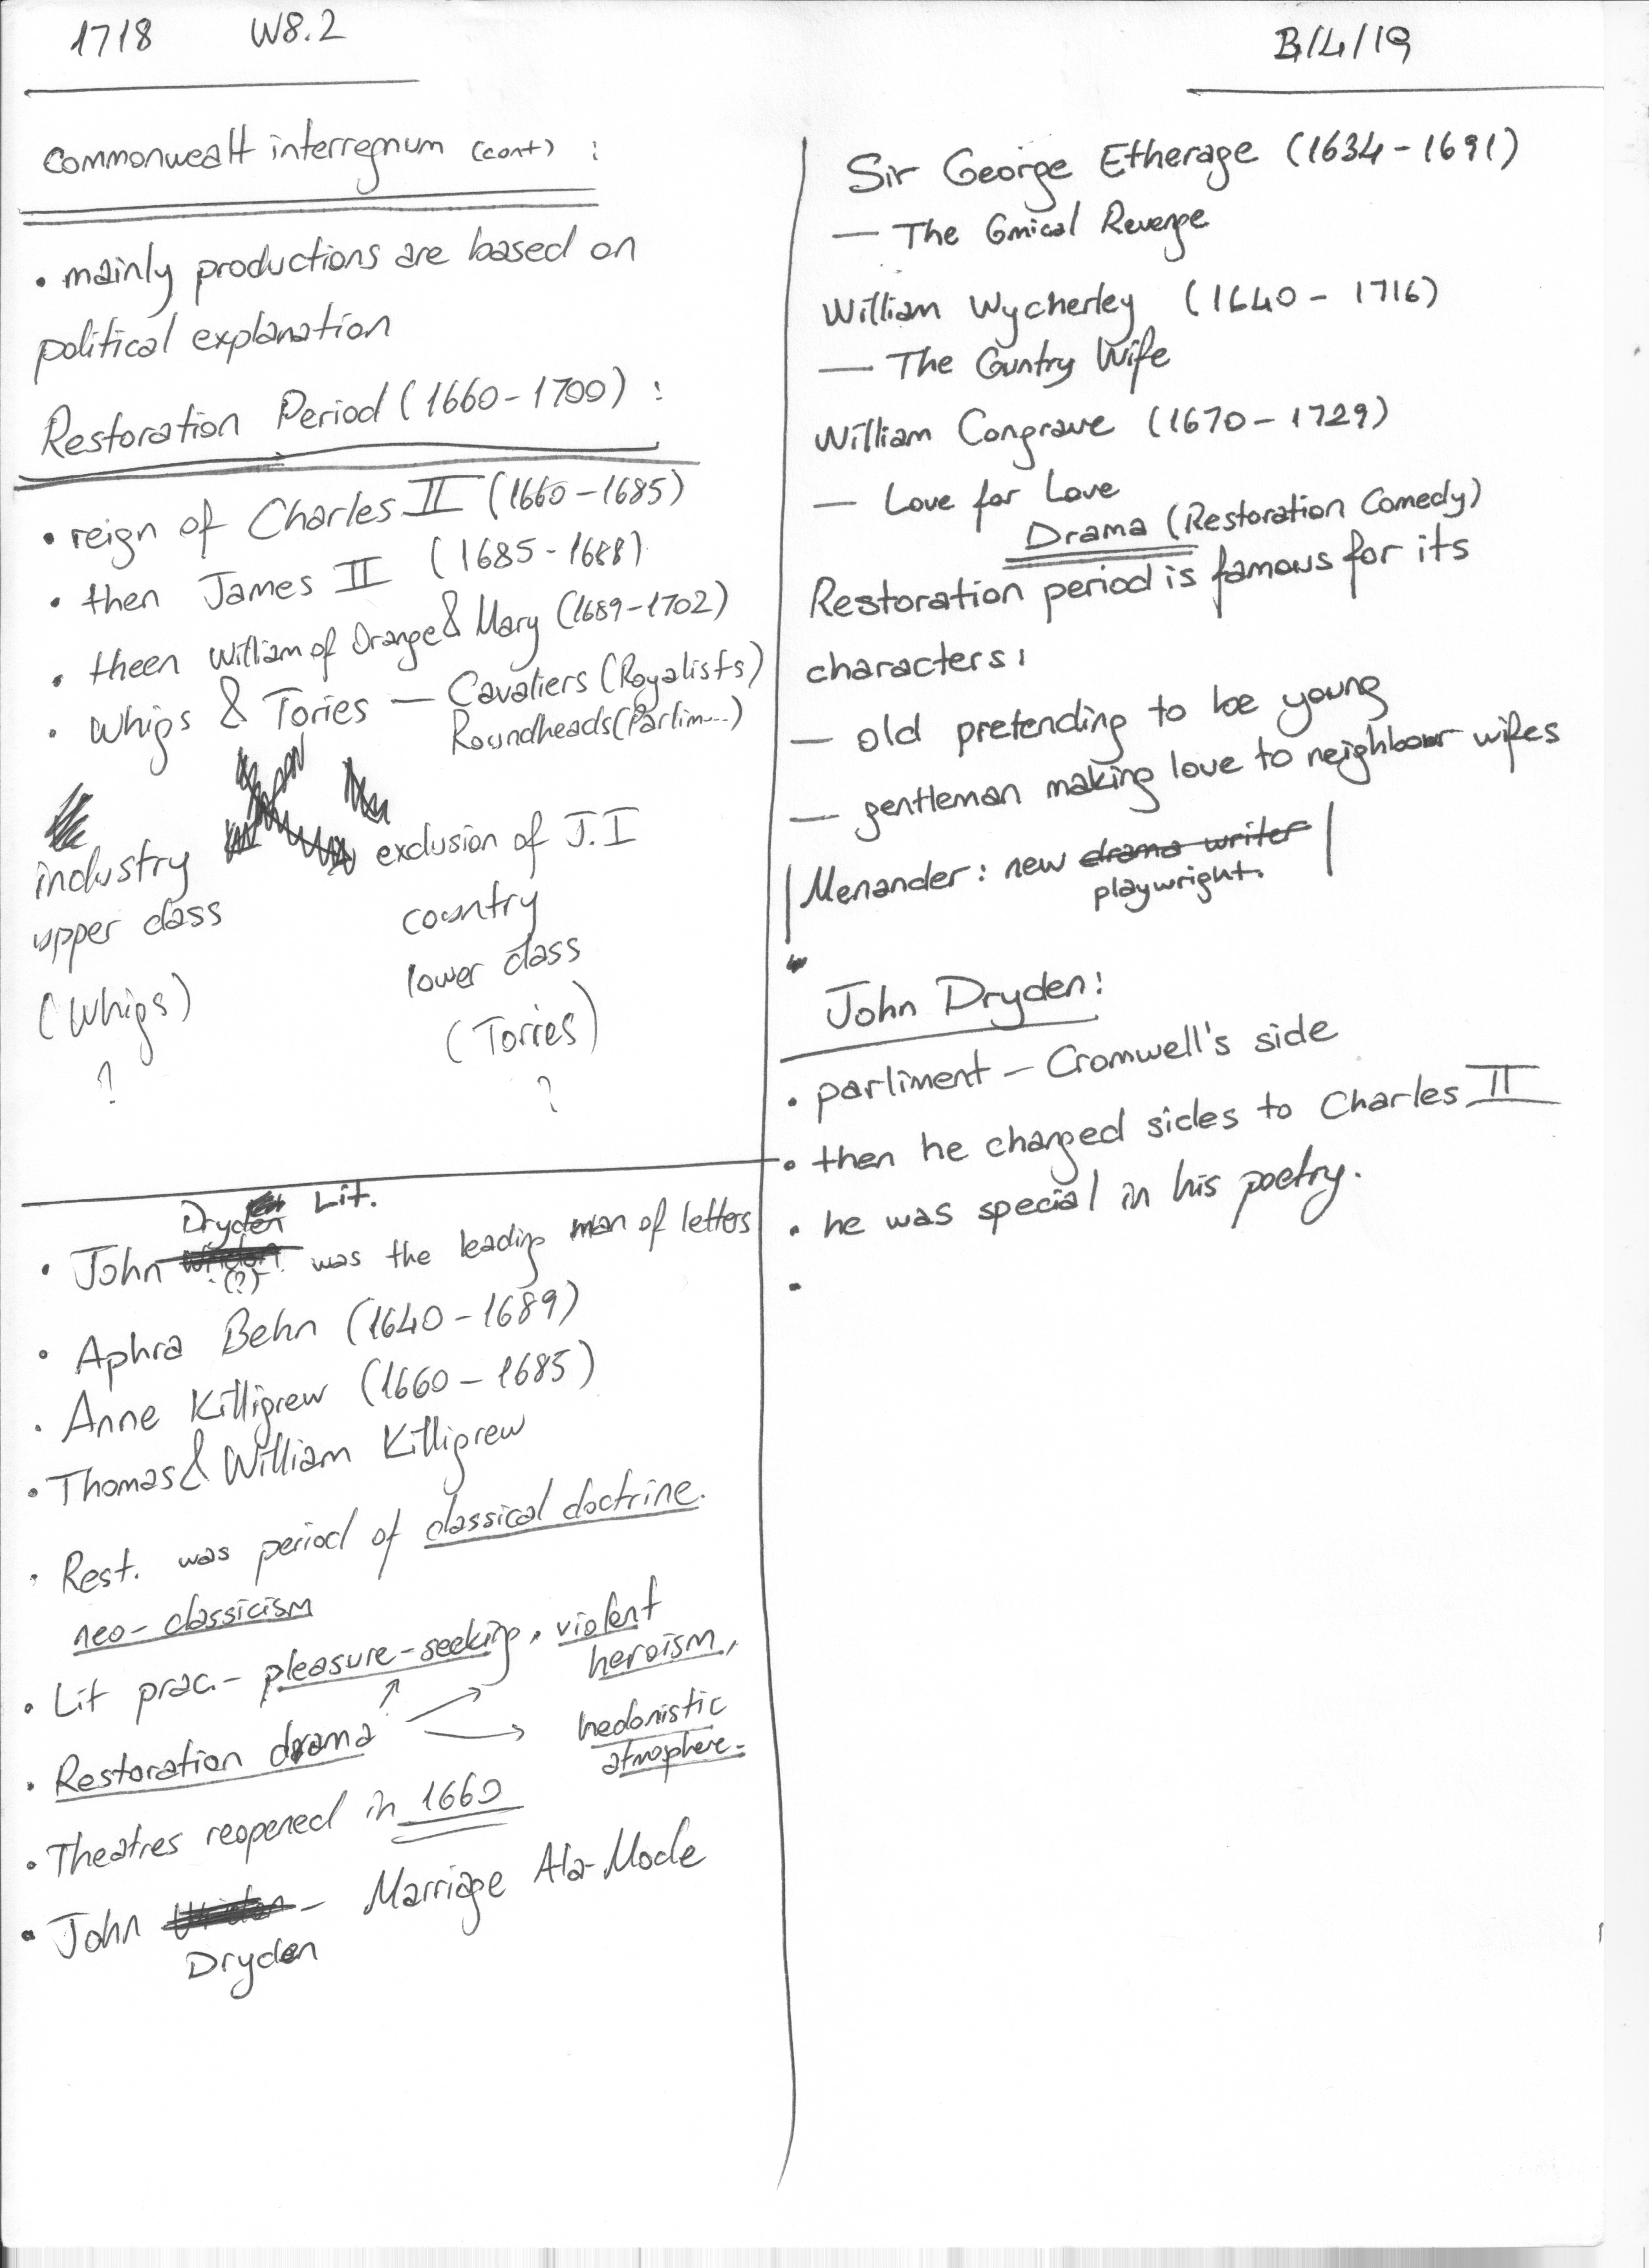 1718 W8.2
B/4/19
Commonwealt interregnum (cont) :
• mainly productions are based on
political explanation
Restoration Period (1660-1700) :
• reign of Charles II (1660-1685)
• then James II (1685-1688)
• theen William of Orange & Mary (1689-1702)
• Whigs & Tories — Cavaliers (Royalists)
Roundheads (Parlim...)
industry
upper class
(Whigs)
?
exclusion of J.I
country
lower class
(Torries)
?
Lit.
Dryden
• John (?) was the leading man of letters
• Aphra Behn (1640-1689)
• Anne Killigrew (1660-1685)
• Thomas & William Killigrew
• Rest. was period of classical doctrine.
neo-classicism
• Lit prac.- pleasure-seeking, violent
heroism,
• Restoration drama
hedonistic
atmosphere.
• Theatres reopened in 1660
• John - Marriage Ala-Mode
Dryden
Sir George Etherage (1634-1691)
— The Comical Revenge
William Wycherley (1640-1716)
— The Country Wife
William Congrave (1670-1729)
— Love for Love
Drama (Restoration Comedy)
Restoration period is famous for its
characters:
— old pretending to be young
— gentleman making love to neighbour wifes
Menander: new drama writer
playwright.
John Dryden:
• parliment - Cromwell's side
• then he changed sides to Charles II
• he was special in his poetry.
•